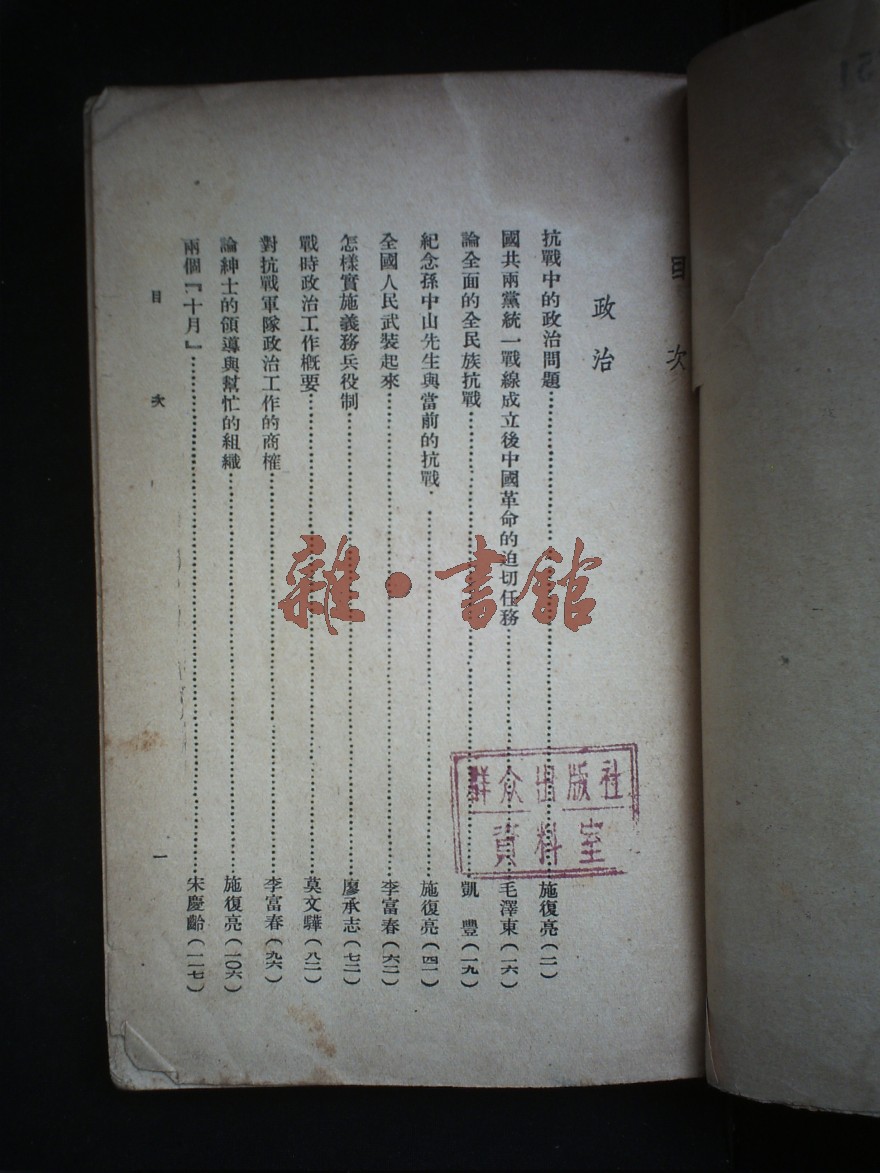 目次
政治
抗戰中的政治問題……施復亮(二)
國共兩黨統一戰線成立後中國革命的迫切任務……毛澤東(一六)
論全面的全民族抗戰……凱豐(一九)
紀念孫中山先生與當前的抗戰……施復亮(四一)
全國人民武裝起來……李富春(六二)
怎樣實施義務兵役制……廖承志(七二)
戰時政治工作概要……莫文驊(八二)
對抗戰軍隊政治工作的商榷……李富春(九六)
論紳士的領導與幫忙的組織……施復亮(一〇六)
兩個『十月』……宋慶齡(一一七)
目次
一
群众出版社
資料室
雜·書館
51